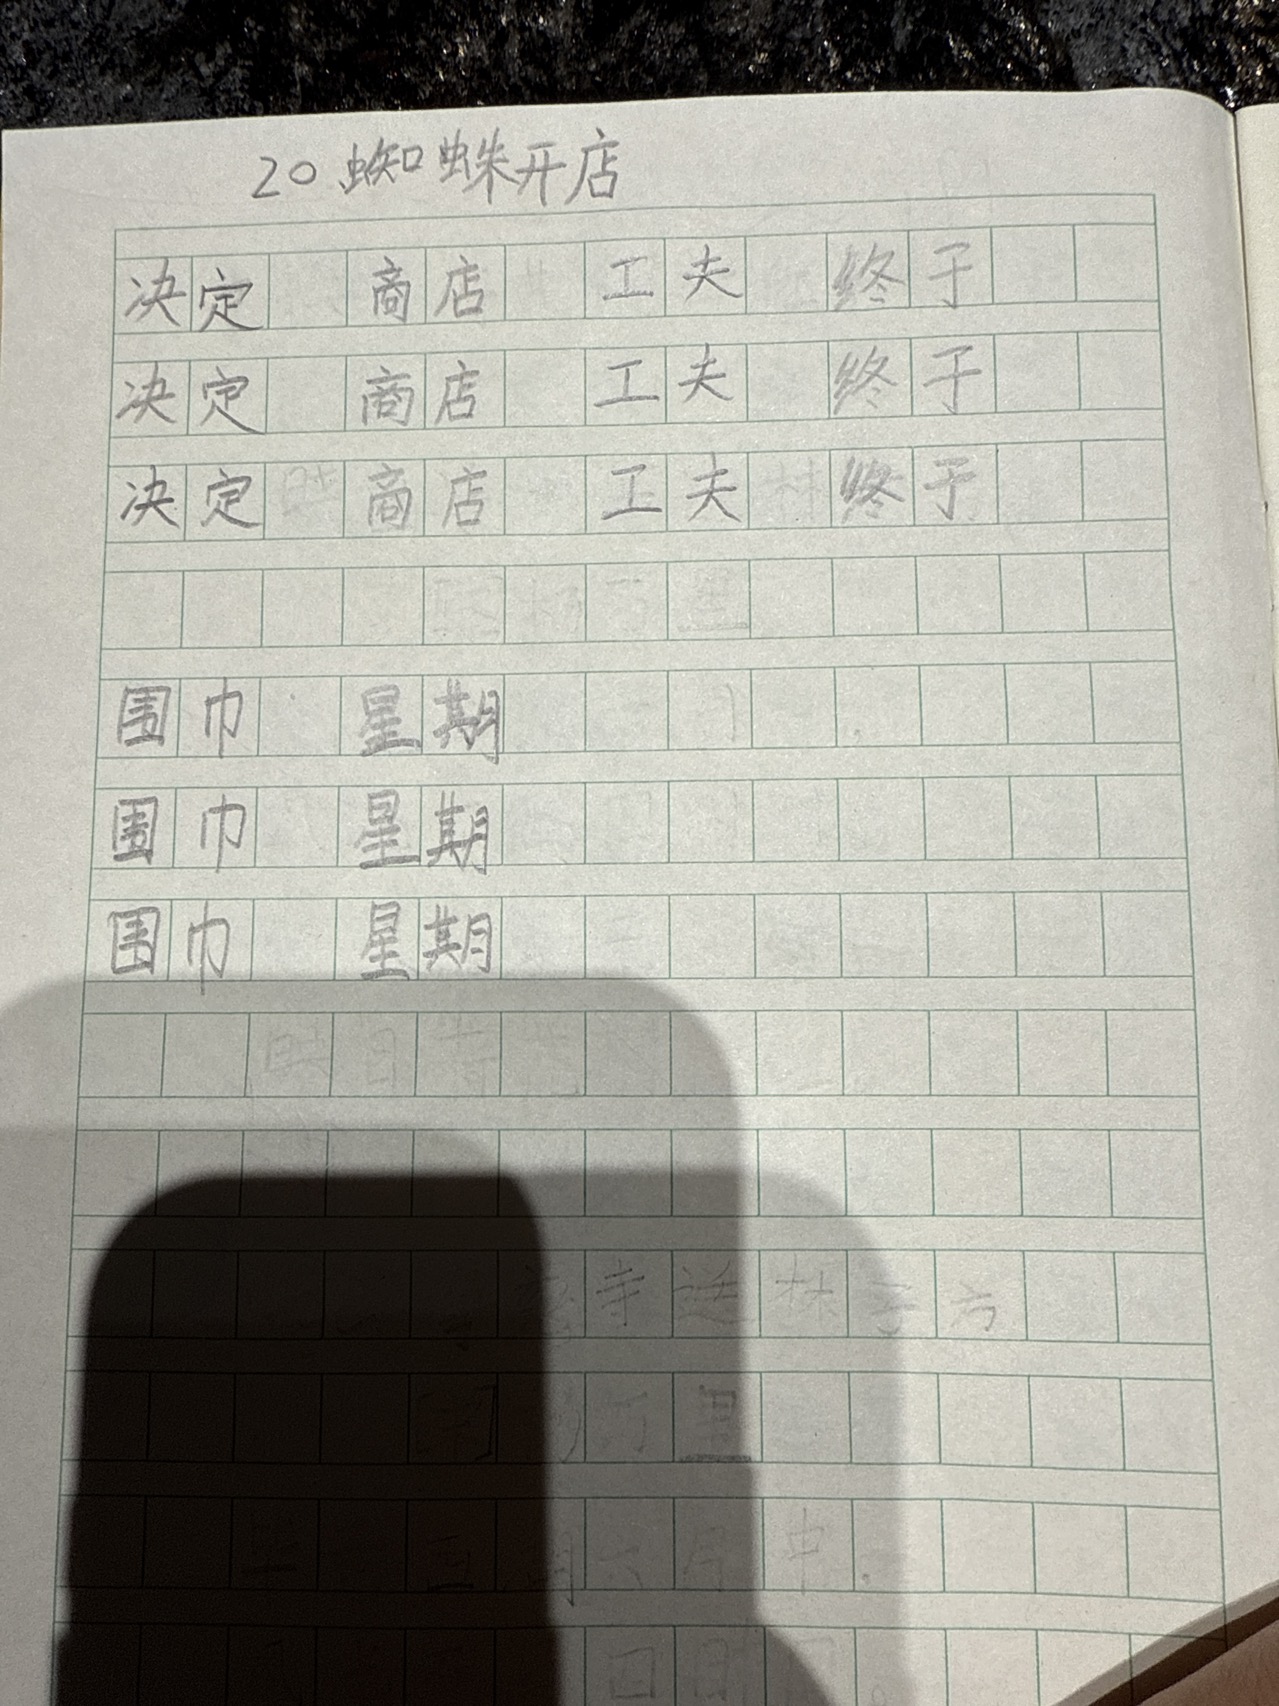 20 蜘蛛开店
决定 商店 工夫 终于
决定 商店 工夫 终于
决定 商店 工夫 终于
围巾 星期
围巾 星期
围巾 星期